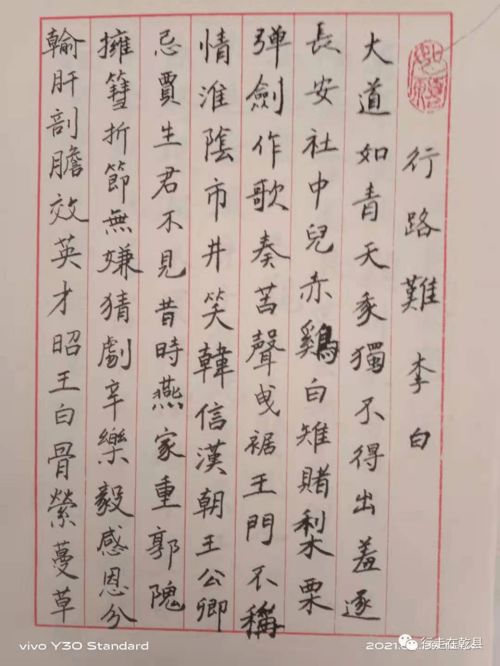 行路難 李白
大道如青天我獨不得出羞逐
長安社中兒赤鷄白雉賭梨栗
彈劍作歌奏苦聲曳裾王門不稱
情淮陰市井笑韓信漢朝王公卿
忌賈生君不見昔時燕家重郭隗
擁篲折節無嫌猜劇辛樂毅感恩分
輸肝剖膽效英才昭王白骨縈蔓草
vivo Y30 Standard
行走在乾县